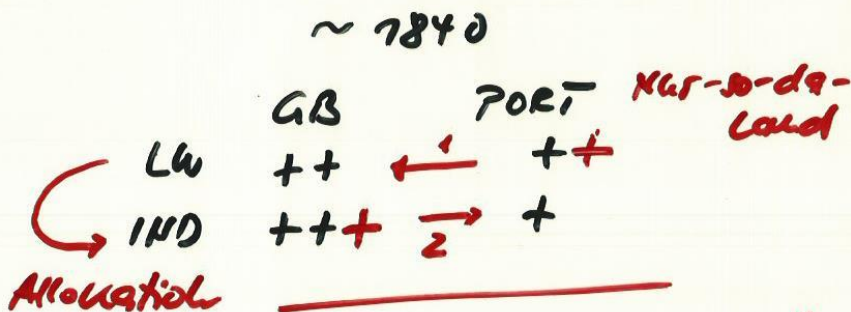 ~ 1840
GB PORT Nur-so-da-
Land
LW ++ 1 ++
IND +++ 2 +
Allokation